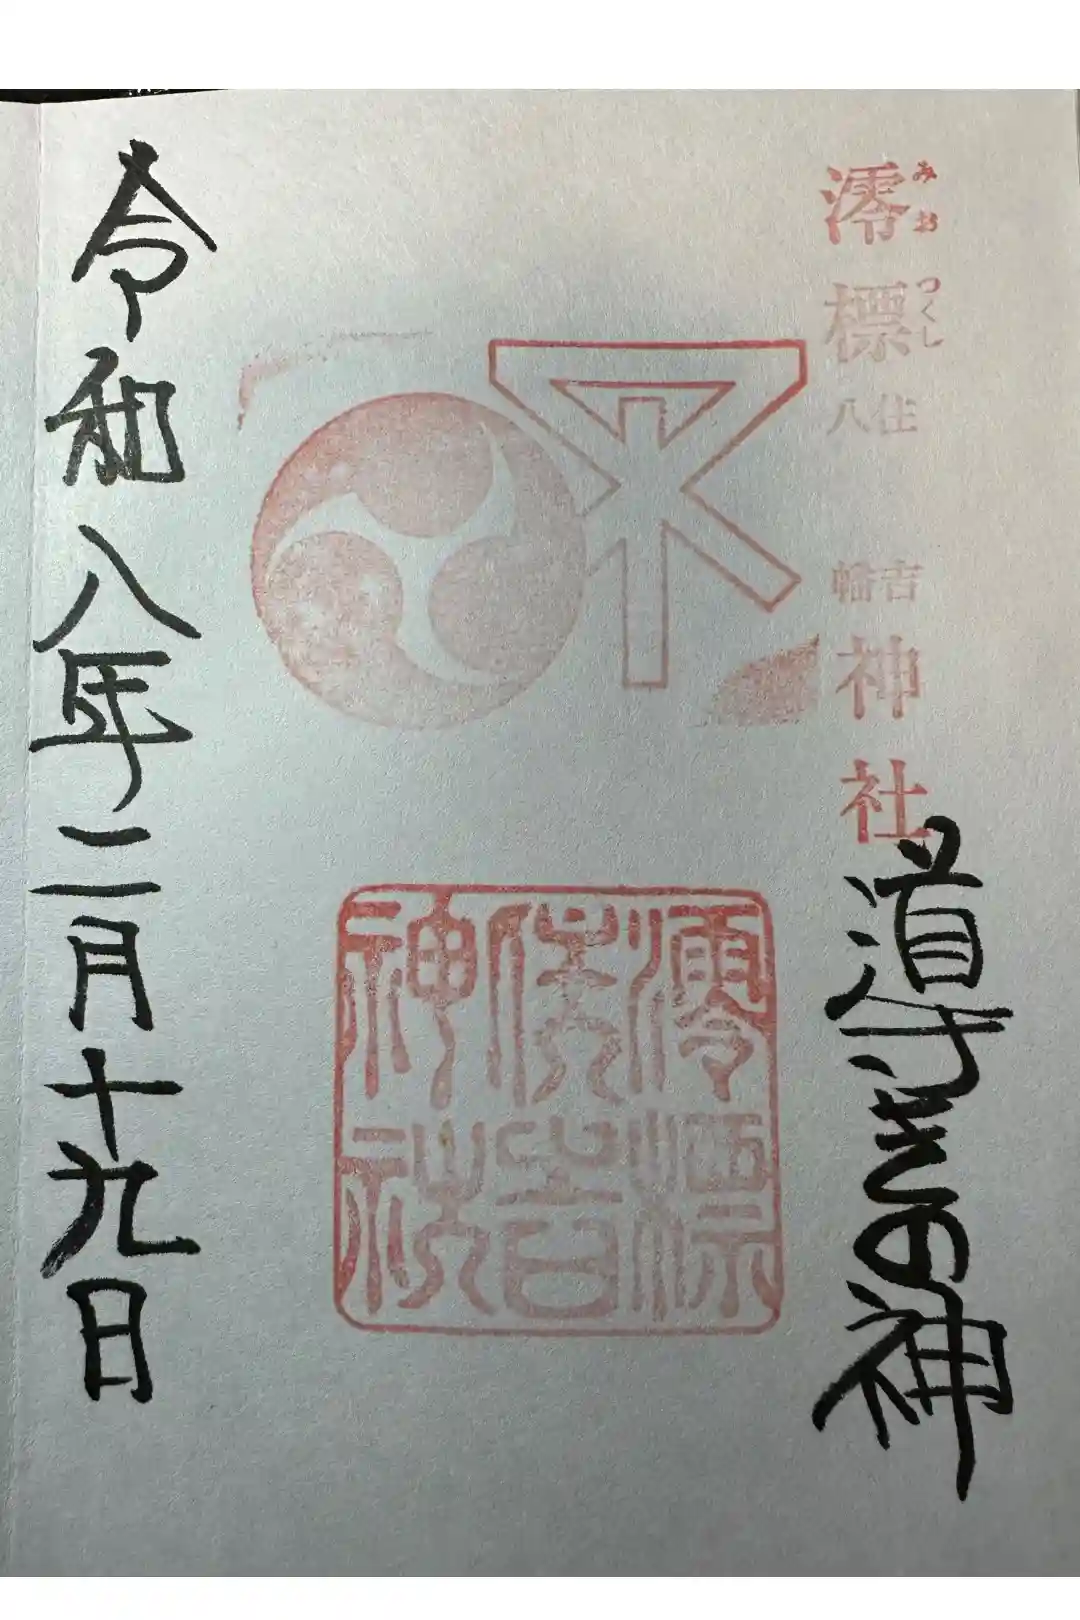 みおつくし
澪標
住吉
八幡
神社
導きの神
澪標
住吉
神社
令和八年二月十九日